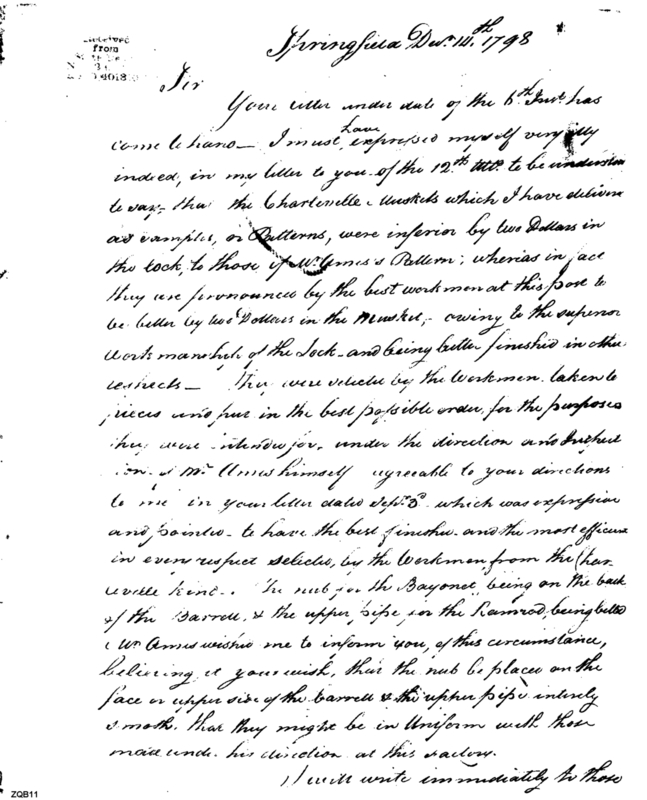 Springfield Decr. 14.th 1798
Received
from
4018
Sir
Your letter under date of the 6th Inst. has
come to hand — I must have expressed myself very illy
indeed, in my letter to you of the 12.th Ulto. to be understood
to say, that the Charleville Muskets which I have deliver
as samples, or Patterns, were inferior by two Dollars in
the lock, to those of Mr. Ames's Pattern; wherias in fact
they are pronounced by the best workmen at this post to
be better by two Dollars in the Musket,- owing to the superior
workmanship of the Lock - and being better finished in other
respects — They were selected by the Workmen, taken to
pieces and put in the best possible order, for the purposes
they were intended for, under the direction and Inspect
ion of Mr. Ames himself agreable to your directions
to me in your letter dated Sept. 3d which was expressive
and pointed - to have the best finished - and the most efficient
in every respect selected, by the Workmen from the Char
leville kind. The nub for the Bayonet, being on the back
of the Barrell, & the upper pipe for the Ramrod, being belled
Mr. Ames wished me to inform you, of this circumstance,
believing it your wish, that the nub be placed on the
face or upper side of the barrell & the upper pipe intirely
smoth, that they might be in Uniform with those
made under his direction at this Factory.
I will write immediately to those
ZQB11